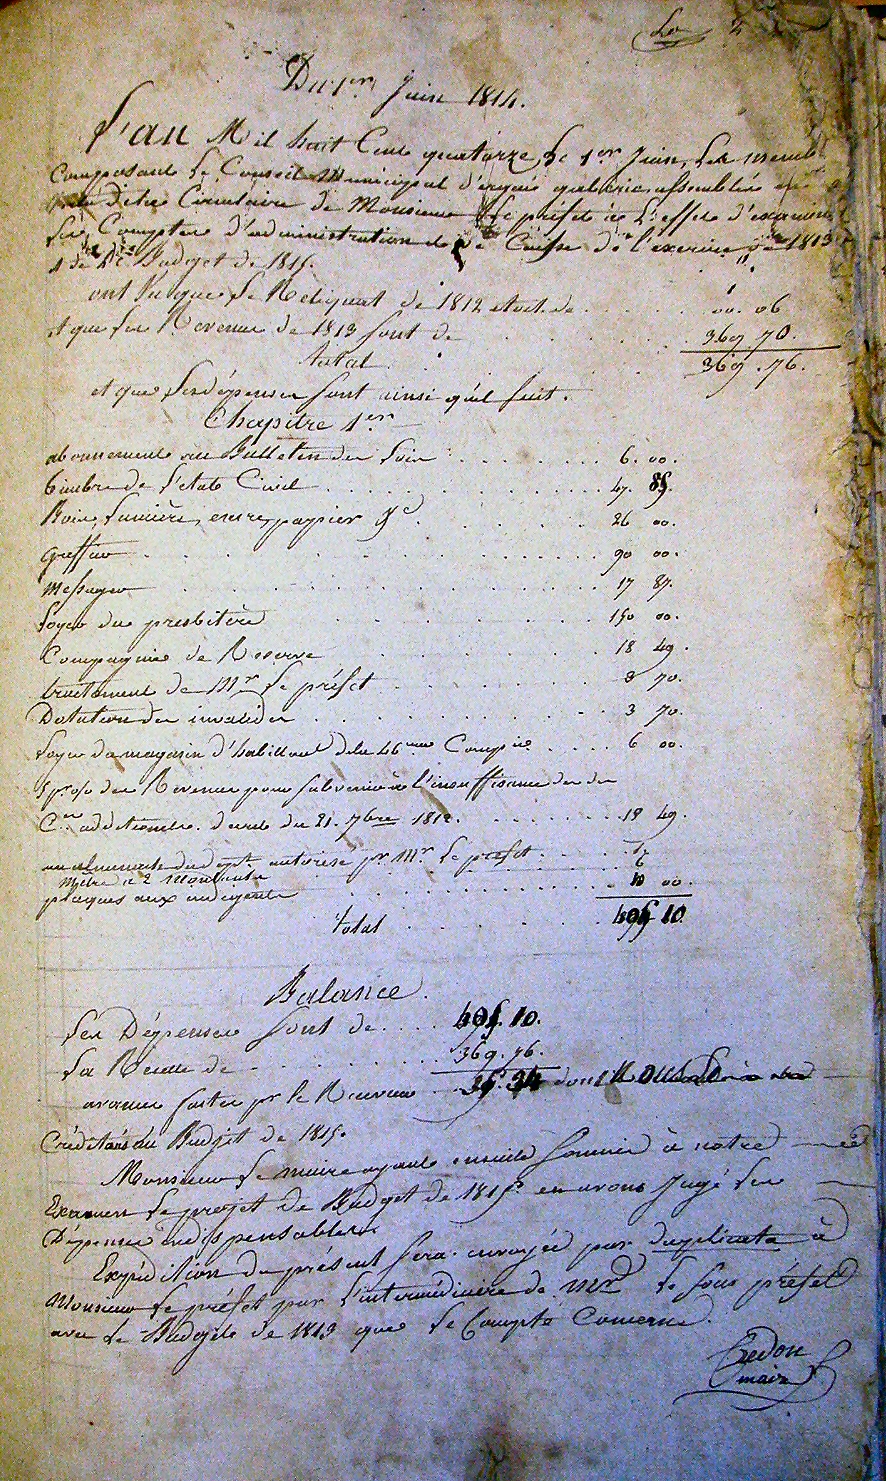 2
Du 1er Juin 1814.
L'an Mil huit Cent quatorze, le 1er Juin, les memb
Composant le Conseil Municipal assemblés
Circulaire de Monsieur le préfet à l'effet d'examiner
les Comptes d'administration et de Caisse de l'exercice 1813
& le Budget de 1815.
ont vu que le Reliquat de 1812 etoit de 00. 06
et que les Revenus de 1813 sont de 369 70.
total 369. 76.
et que les dépenses sont ainsi qu'il suit.
Chapitre 1er
abonnement au Bulletin des Loix 6. 00.
timbre de l'état Civil 47. 85.
Bois, lumière, encre, papier &c 26 00.
greffier 90 00.
Messager 17 87.
Loyer du presbitère 150 00.
Compagnie de Reserve 18 49.
traitement de Mr le préfet 8 70.
Dotation des invalides 3 70.
Loyer du magasin d'habillemt de la 46me Compie 6 00.
5 pr 0/0 des Revenus pour subvenir à l'insuffisance des
Cen additionels. decret du 21. 7bre 1812. 18 49.
autorisé pr Mr le prefet
6
plaques aux indigents 10 00.
total 405 10
Balance.
Les Dépenses sont de 405. 10.
La Recette de 369. 76.
avance faite pr le Receveur 35. 34 dont Nous
Créditons au Budjet de 1815.
Monsieur le maire ayant ensuite soumis à notre
Examen le projet de Budget de 1815. en avons Jugé les
Dépenses indispensables.
Expédition du présent sera envoyée par duplicata à
Monsieur le préfet par l'intermédiaire de Mr le sous préfet
avec le Budgete de 1813 que le Compte Concerne.
Gedon
maire